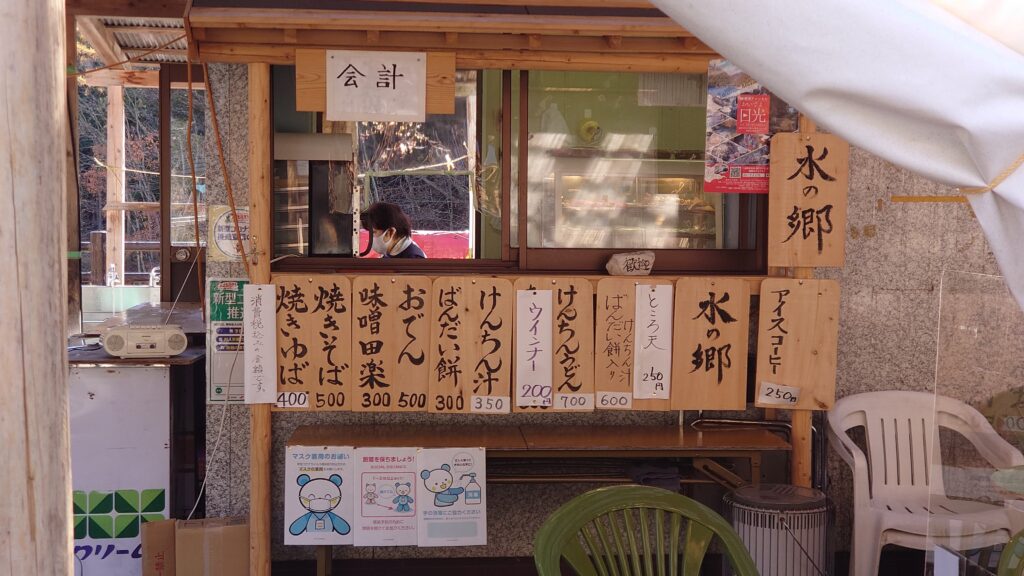 会計
日光
水の郷
歓迎
消費税込みの金額です。
焼きゆば
400
焼きそば
500
味噌田楽
300
おでん
500
ばんだい餅
300
けんちん汁
350
ウインナー
200円
けんちんうどん
700
けんちん汁
ばんだい餅入り
600
ところ天
250円
水の郷
アイスコーヒー
250円
マスク着用のお願い
距離を保ちましょう!
SOCIAL DISTANCE
クリーム